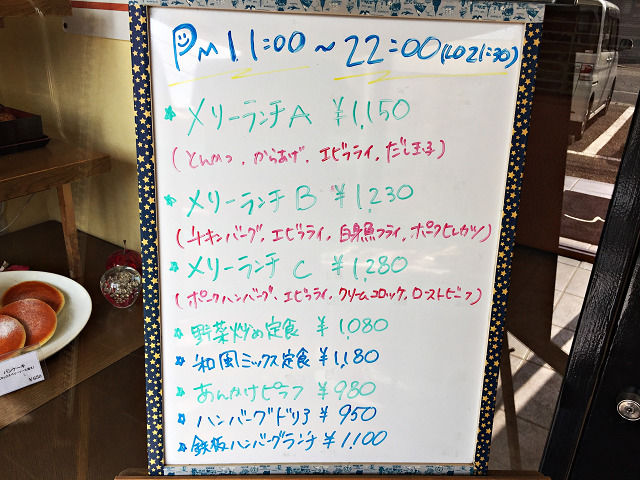 PM 11:00 ~ 22:00 (LO 21:30)
メリーランチ A ¥1,150
(とんかつ, からあげ, エビフライ, だし玉子)
メリーランチ B ¥1,230
(チキンバーグ, エビフライ, 白身魚フライ, ポークヒレカツ)
メリーランチ C ¥1,280
(ポークハンバーグ, エビフライ, クリームコロッケ, ローストビーフ)
野菜炒め定食 ¥1,080
和風ミックス定食 ¥1,180
あんかけピラフ ¥980
ハンバーグドリア ¥950
鉄板ハンバーグランチ ¥1,100
パンケーキ